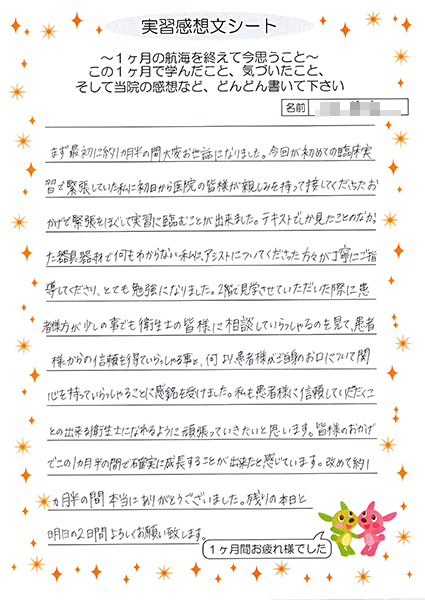 実習感想文シート
～１ヶ月の航海を終えて今思うこと～
この１ヶ月で学んだこと、気づいたこと、
そして当院の感想など、どんどん書いて下さい
名前
まず最初に約1ヵ月半の間大変お世話になりました。今回が初めての臨床実
習で緊張していた私に初日から医院の皆様が親しみを持って接してくださったお
かげで緊張をほぐして実習に臨むことが出来ました。テキストでしか見たことのなかっ
た器具器材で何もわからない私に、アシストについてくださった方々が丁寧にご指
導してくださり、とても勉強になりました。2階で見学させていただいた際に患
者様方が少しの事でも衛生士の皆様に相談していらっしゃるのを見て、患者
様からの信頼を得ていらっしゃる事と、何より患者様がご自身のお口について関
心を持っていらっしゃることに感銘を受けました。私も患者様に信頼していただくこ
との出来る衛生士になれるように頑張っていきたいと思います。皆様のおかげ
でこの1ヵ月半の間で確実に成長することが出来たと感じています。改めて約1
ヵ月半の間本当にありがとうございました。残りの本日と
明日の2日間よろしくお願い致します。
１ヶ月間お疲れ様でした